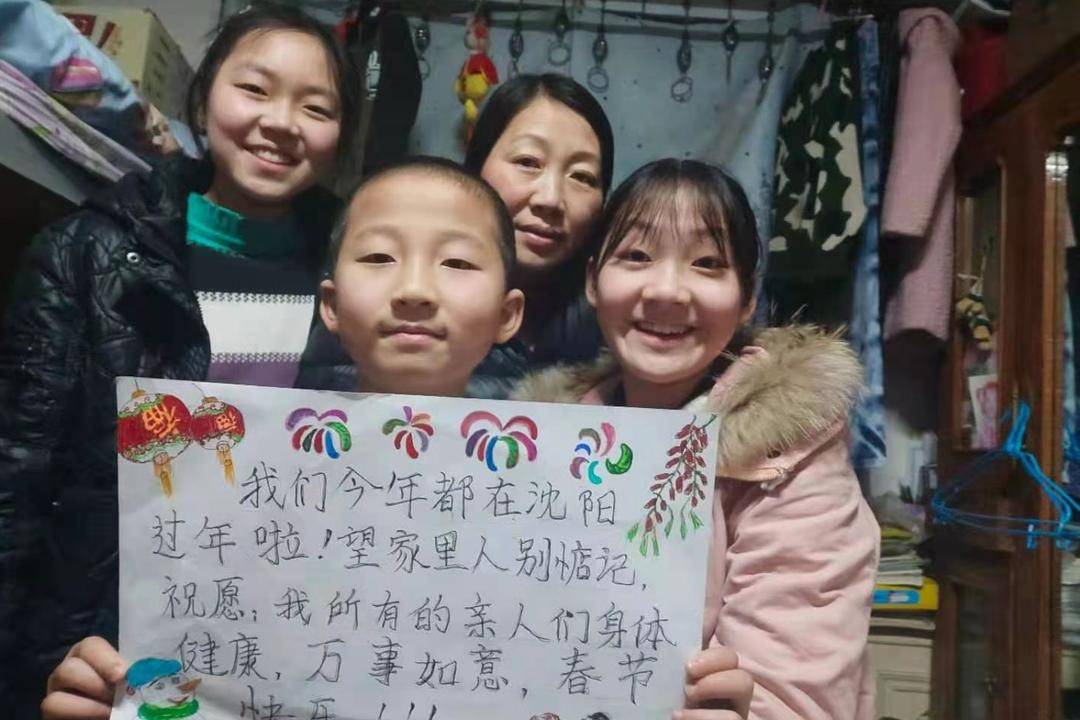 福
福
我们今年都在沈阳
过年啦！望家里人别惦记，
祝愿：我所有的亲人们身体
健康，万事如意，春节
快乐！！！